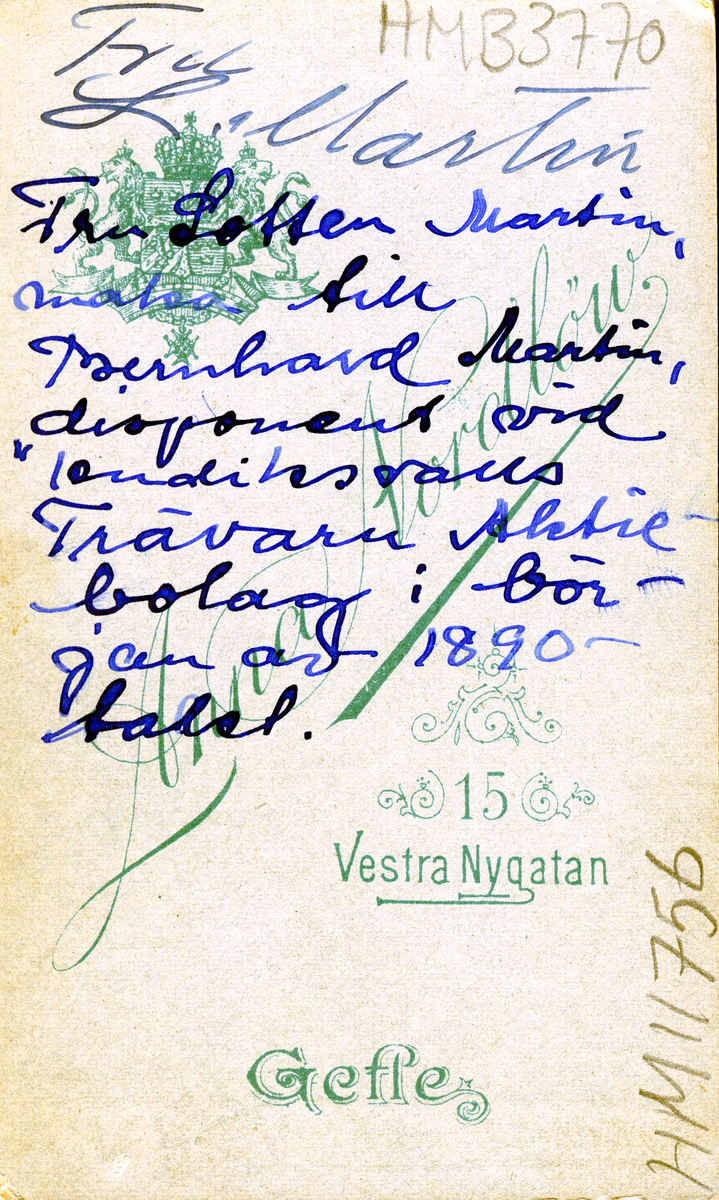 HMB3770
Fru
L. Martin
Fru Lotten Martin,
maka till
Bernhard Martin,
disponent vid
Trävaru Aktie-
bolag i bör-
jan av 1890-
talet.
Anna Nordlöw,
15
Vestra Nygatan
Gefle
HM11756